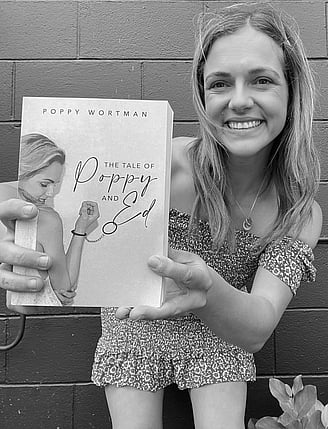 POPPY WORTMAN
THE TALE OF
Poppy
AND
Ed